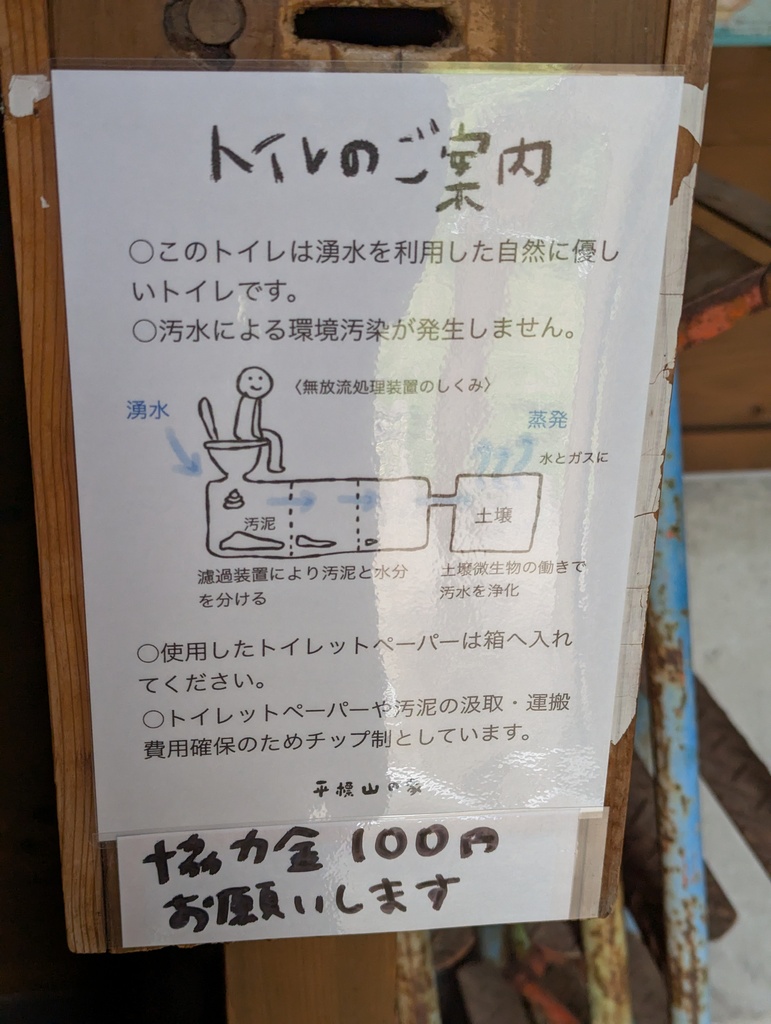 トイレのご案内
○このトイレは湧水を利用した自然に優し
いトイレです。
○汚水による環境汚染が発生しません。
〈無放流処理装置のしくみ〉
湧水
蒸発
水とガスに
汚泥
土壌
濾過装置により汚泥と水分
を分ける
土壌微生物の働きで
汚水を浄化
○使用したトイレットペーパーは箱へ入れ
てください。
○トイレットペーパーや汚泥の汲取・運搬
費用確保のためチップ制としています。
平標山の家
協力金 100円
お願いします